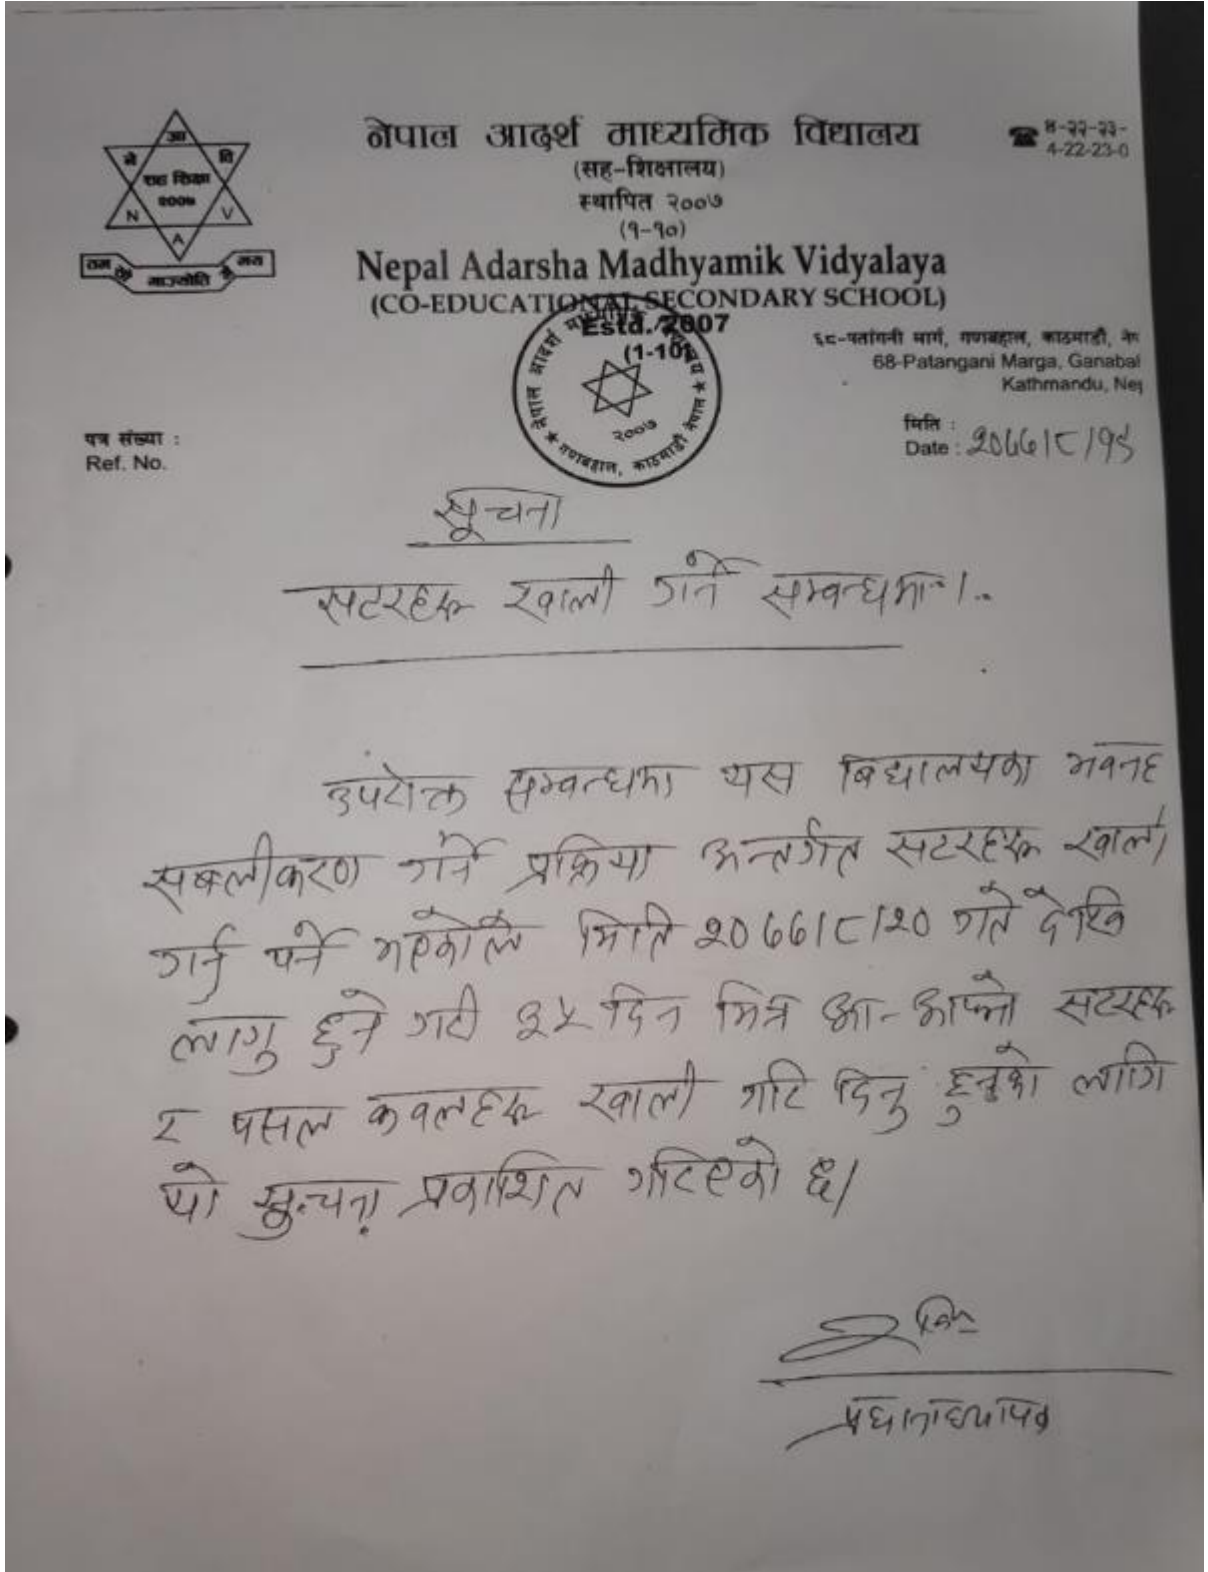 आ
ने वि
सह शिक्षा
२००७
N V
A
तमसो माज्योति र्गमय
नेपाल आदर्श माध्यमिक विद्यालय
(सह-शिक्षालय)
स्थापित २००७
(१-१०)
Nepal Adarsha Madhyamik Vidyalaya
(CO-EDUCATIONAL SECONDARY SCHOOL)
Estd. 2007
(1-10)
४-२२-२३-
4-22-23-0
६८-पतांगनी मार्ग, गणबहाल, काठमाडौं, ने
68-Patangani Marga, Ganabal
Kathmandu, Nep
नेपाल आदर्श माध्यमिक विद्यालय
२००७
गणबहाल, काठमाडौं नेपाल
पत्र संख्या :
Ref. No.
मिति :
Date : २०७७।८।१९
सूचना
सटरहरू खाली गर्ने सम्वन्धमा।..
उपरोक्त सम्वन्धमा यस बिद्यालयका भवनह
सबलीकरण गर्ने प्रक्रिया अन्तर्गत सटरहरू खाली
गर्नु पर्ने भएकोले मिति २०७७।८।२० गते देखि
लागु हुने गरी ३५ दिन भित्र आ-आफ्नो सटरहरू
र पसल कवलहरू खाली गरि दिनु हुनको लागि
यो सुचना प्रकाशित गरिएको छ।
प्रधानाध्यापक